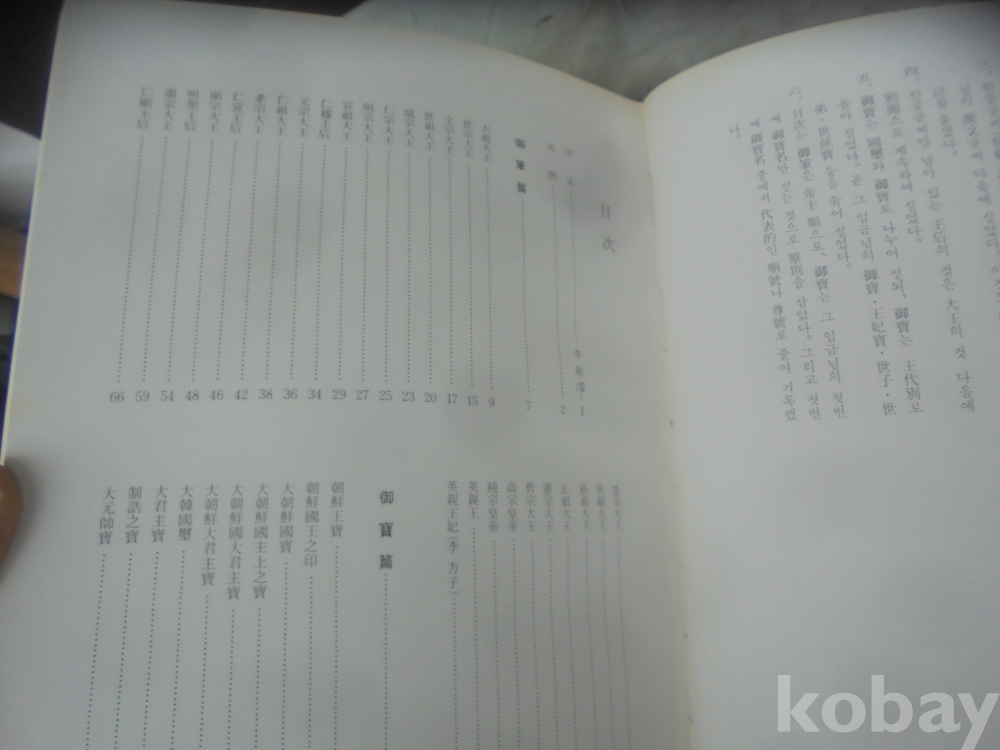 너의 漢文을 써 다음에 실었다
한글글씨만 남아 있는 王后의 것은 大王의 것 다음에
四、
別冊으로 계속하여 실었다.
五、御寶는 國璽와 御寶로 나누어 실되、御寶는 王代別로
弟·世孫寶 등을 묶어 실었다。
물아 실었다. 곧 그 임금님의 御寶·王妃寶·世子·世
六、目次는 御筆은 帝王 順으로、御寶는 그 임금님의 첫번
에 御寶名만 싣는 것으로 原則을 삼았다. 그리고 첫번
에 御寶名 중에서 代表的인 廟號나 尊號로 줄여 기록했
다.
目次
序文 1
凡例 2
御筆篇 7
太祖大王 9
世宗大王 15
文宗大王 17
世祖大王 20
成宗大王 23
仁宗大王 25
明宗大王 27
宣祖大王 29
仁穆王后 34
元宗大王 36
仁祖大王 38
孝宗大王 42
仁宣王后 46
顯宗大王 48
明聖王后 54
肅宗大王 59
仁顯王后 66
景宗大王
英祖大王
莊祖大王
正祖大王
憲宗大王
哲宗大王
高宗皇帝
純宗皇帝
英親王
英親王妃(李方子)
御寶篇
朝鮮王寶
朝鮮國王之印
大朝鮮國寶
大朝鮮國主上之寶
大朝鮮國大君主寶
大朝鮮大君主寶
大韓國璽
大君主寶
制誥之寶
大元帥寶
kobay